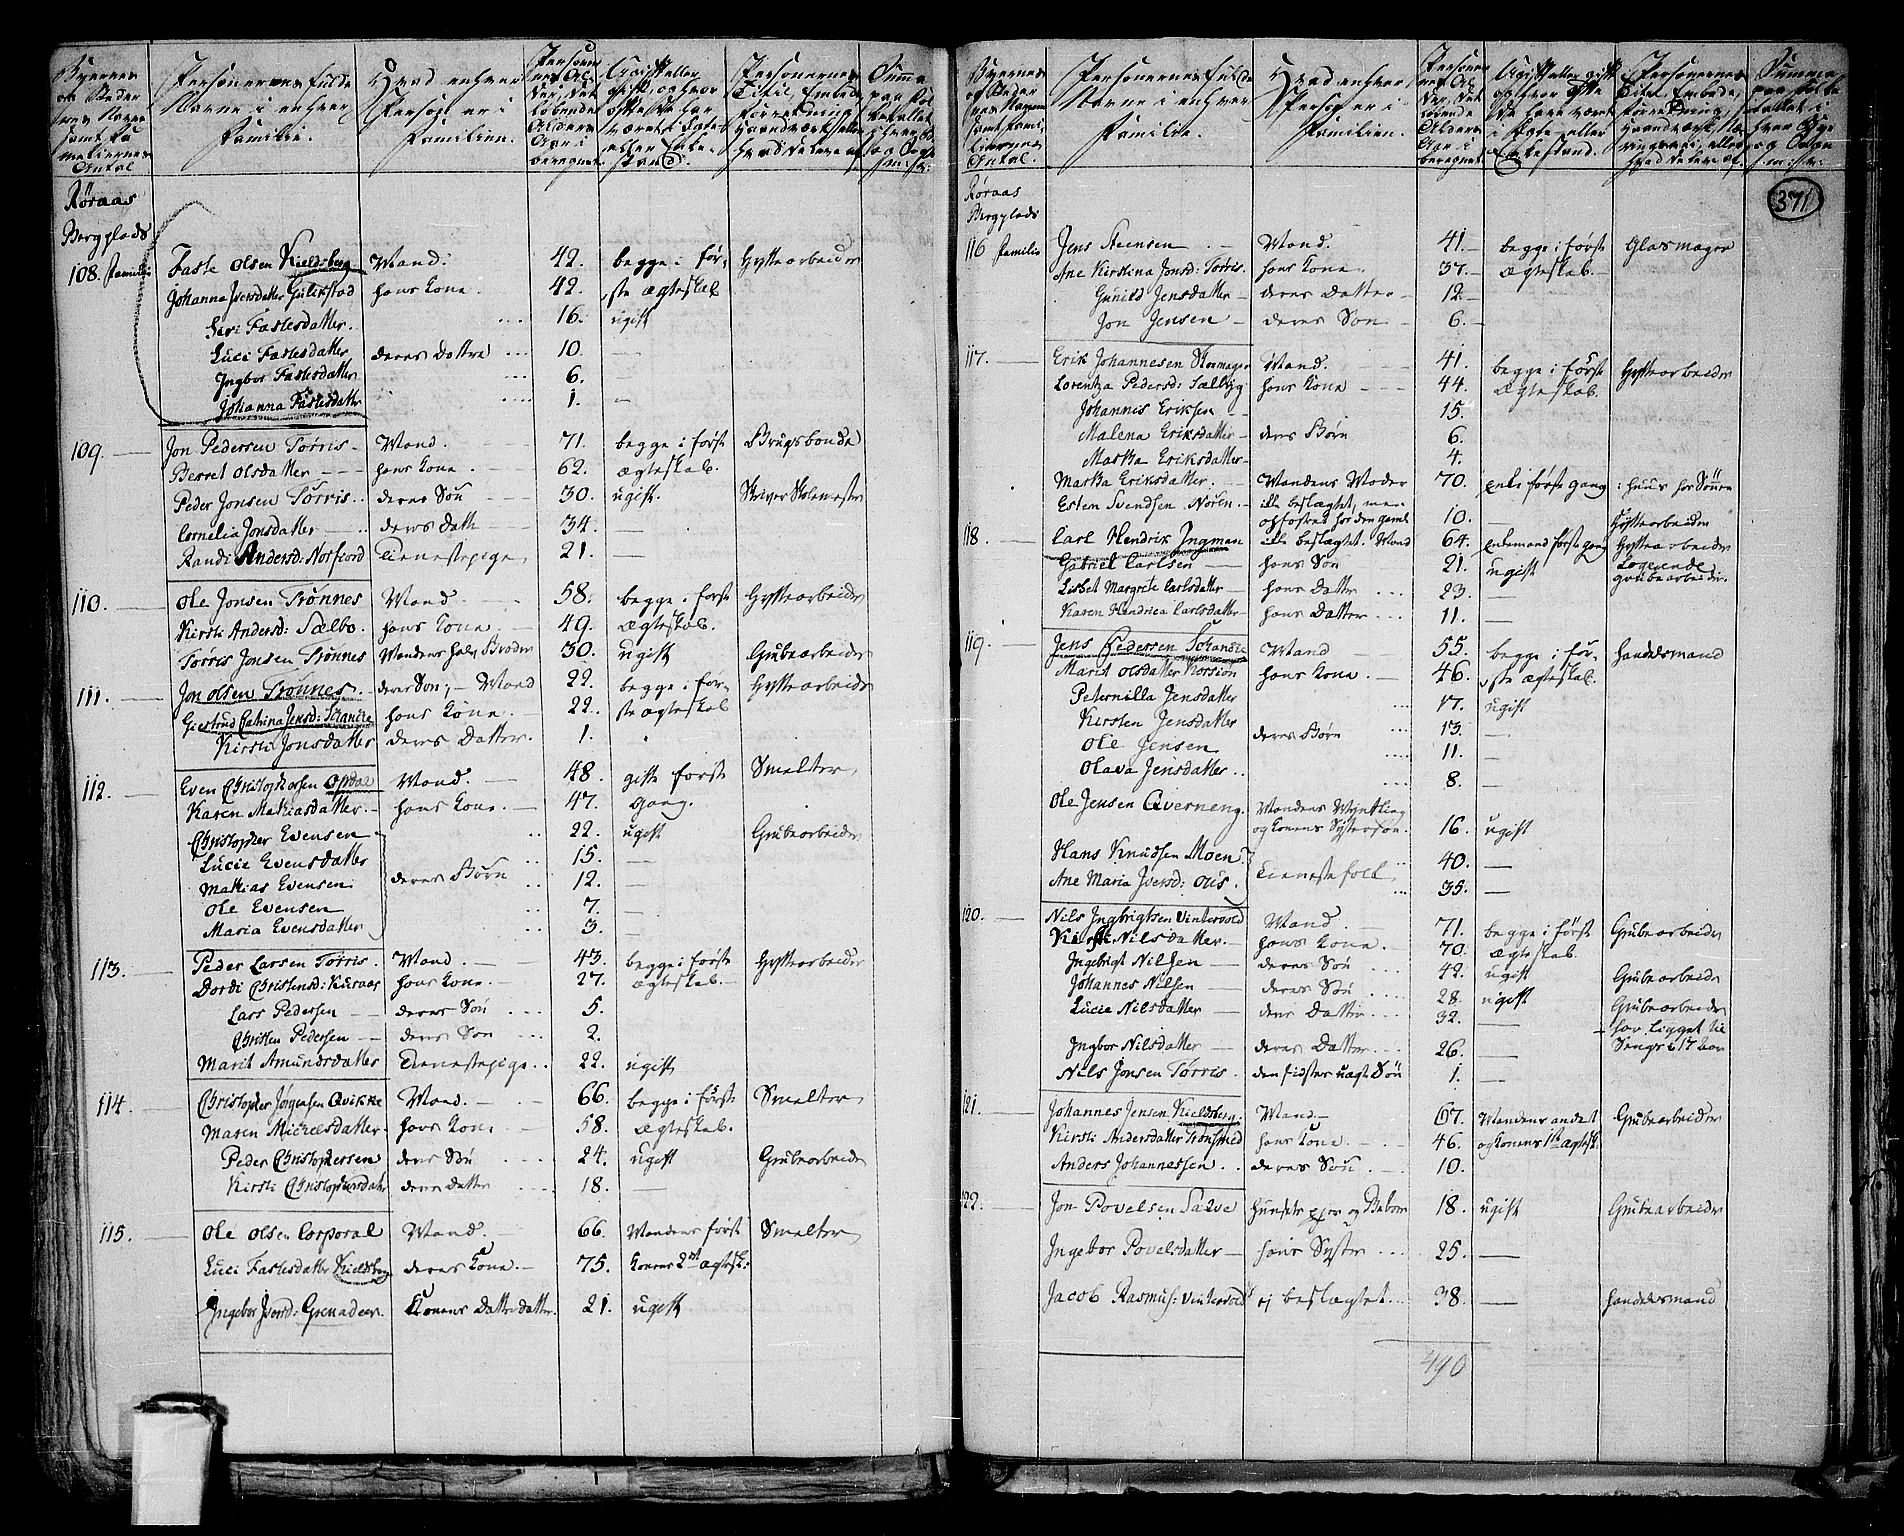 Byernes og Steder nes Navne samt Fa miliernes Antal
Personernes fulde Navne i enhver Familie.
Hvad enhver Person er i Familien.
Røraas
Bergplads
108. Familie
Faste Olsen Kieldsberg Mand. 42. begge i før- Hyttearbeider
Johanna Iversdatter Gulikstad hans Kone. 42. ste ægteskab
Siri Fastesdatter. 16. ugift
Luci Fastesdatter deres Døttre 10. —
Ingbor Fastesdatter 6. —
Johanna Fastesdatter 1. —
109. Jon Pedersen Tørris Mand. 71. begge i først Brugsbonde
Berret Olsdatter hans Kone. 62. ægteskab.
Peder Jonsen Tørris deres Søn 30. ugift. Skriver Skolemester
Cornelia Jonsdatter deres Datt 34. —
Randi Andersd: Norfiord Tienestepige 21. —
110. Ole Jonsen Trønnes Mand. 58. begge i først Hyttearbeider
Kirsti Andersd: Sælbo. hans Kone. 49. Ægteskab.
Tørris Jonsen Trønnes Mandens halv Broder 30. ugift Grubearbeider
111. Jon Olsen Trønnes deres Søn, Mand 22. begge i før- Hyttearbeider
Giertrud Catrina Jensd: Schancke hans Kone. 22. ste ægteskab
Kirsti Jonsdatter deres Datter. 1.
112. Even Christophersen Opdal Mand. 48. gifte første Smelter
Karen Mathiasdatter hans Kone. 47. gang.
Christopher Evensen 22. ugift Grubearbeider
Lucie Evensdatter 15. —
Mathias Evensen deres Børn 12. —
Ole Evensen 7. —
Maria Evensdatter 3. —
113. Peder Larsen Tørris Mand. 43. begge i først Hyttearbeider
Dordi Christensd: Kuraas hans Kone. 27. ægteskab.
Lars Pedersen deres Søn 5.
Christen Pedersen deres Søn 2.
Marit Amundsdatter Tienestepige 22. ugift
114. Christopher Jørgensen Qvikke Mand. 66. begge i først Smelter
Maren Mickelsdatter hans Kone 58. Ægteskab.
Peder Christophersen deres Søn 24. ugift Grubearbeider
Kirsti Christophersdatter deres Datter 18. —
115. Ole Olsen Corporal Mand. 66. Mandens først Smelter
Luci Fastesdatter Kieldsberg deres Kone. 75. Konens 2det ægtesk:
Ingebor Iversd: Grenadeer. Konens Datterdatter. 21. ugift
Personernes fulde Navne i enhver Familie.
Hvad enhver Person er i Familien.
371
Røraas
Bergplads
116 Familie Jens Steensen Mand. 41. begge i først Glasmager
Ane Kirstina Jonsd: Tørris. hans Kone. 37. ægteskab.
Gunild Jensdatter deres Datter 12.
Jon Jensen deres Søn 6.
117. Erik Johannesen Skomager Mand. 41. begge i først Hyttearbeider
Lorentza Pedersd: Sælbyg hans Kone 44. Ægteskab.
Johannis Eriksen 15.
Malena Eriksdatter deres Børn 6.
Martha Eriksdatter 4.
Martha Eriksdatter. Mandens Moder 70. enke første gang i huus hos Sønnen
Esten Svendsen Noren. ikke beslægtet, men opfostret hos den gamle 10. — Hyttearbeider
118. Carl Hendrik Ingman ikke beslægtet. Mand 64. enkemand første gang Hyttearbeider Logerende
Gabriel Carlsen hans Søn 21. ugift grubearbeider.
Lisbet Margrete Carlsdatter hans Datter 23. —
Karen Hendrica Carlsdatter hans Datter 11. —
119. Jens Pedersen Schancke Mand 55. begge i før- handelsmand
Marit Olsdatter Korsion hans Kone. 46. ste ægteskab.
Peternilla Jensdatter 17. ugift
Kirsten Jensdatter 13. —
Ole Jensen deres Børn 11. —
Olava Jensdatter 8. —
Ole Jensen Qverneng. Mandens Myntling og Konens Søstersøn. 16. ugift
Hans Knudsen Moen Tienestefolk 40. —
Ane Maria Iversd: Ous. 35. —
120. Nils Ingbrigtsen Vintervold Mand. 71. begge i først Grubearbeider
Kirsti Nilsdatter. hans Kone. 70. ægteskab.
Ingebrigt Nilsen deres Søn 42. ugift Grubearbeider
Johannes Nilsen deres Søn 28. ugift Grubearbeider
Lucie Nilsdatter deres Datter 32. — har ligget til Sengs i 17 Aar
Ingbor Nilsdatter deres Datter 26. —
Nils Jonsen Tørris. den sidstes uægte Søn 1. —
121. Johannes Jensen Kieldsberg. Mand. 67. Mandens andet Grubearbeider
Kirsti Andersdatter Tronsmed hans Kone. 46. og Konens 1ste ægtesk.
Anders Johannessen deres Søn. 10.
122. Jon Povelsen Salve Huusets ejer og Beboer 18. ugift Grubearbeider
Ingebor Povelsdatter hans Syster 25. —
Jacob Rasmus: Vintervold ej beslægtet 38. — handelsmand
490